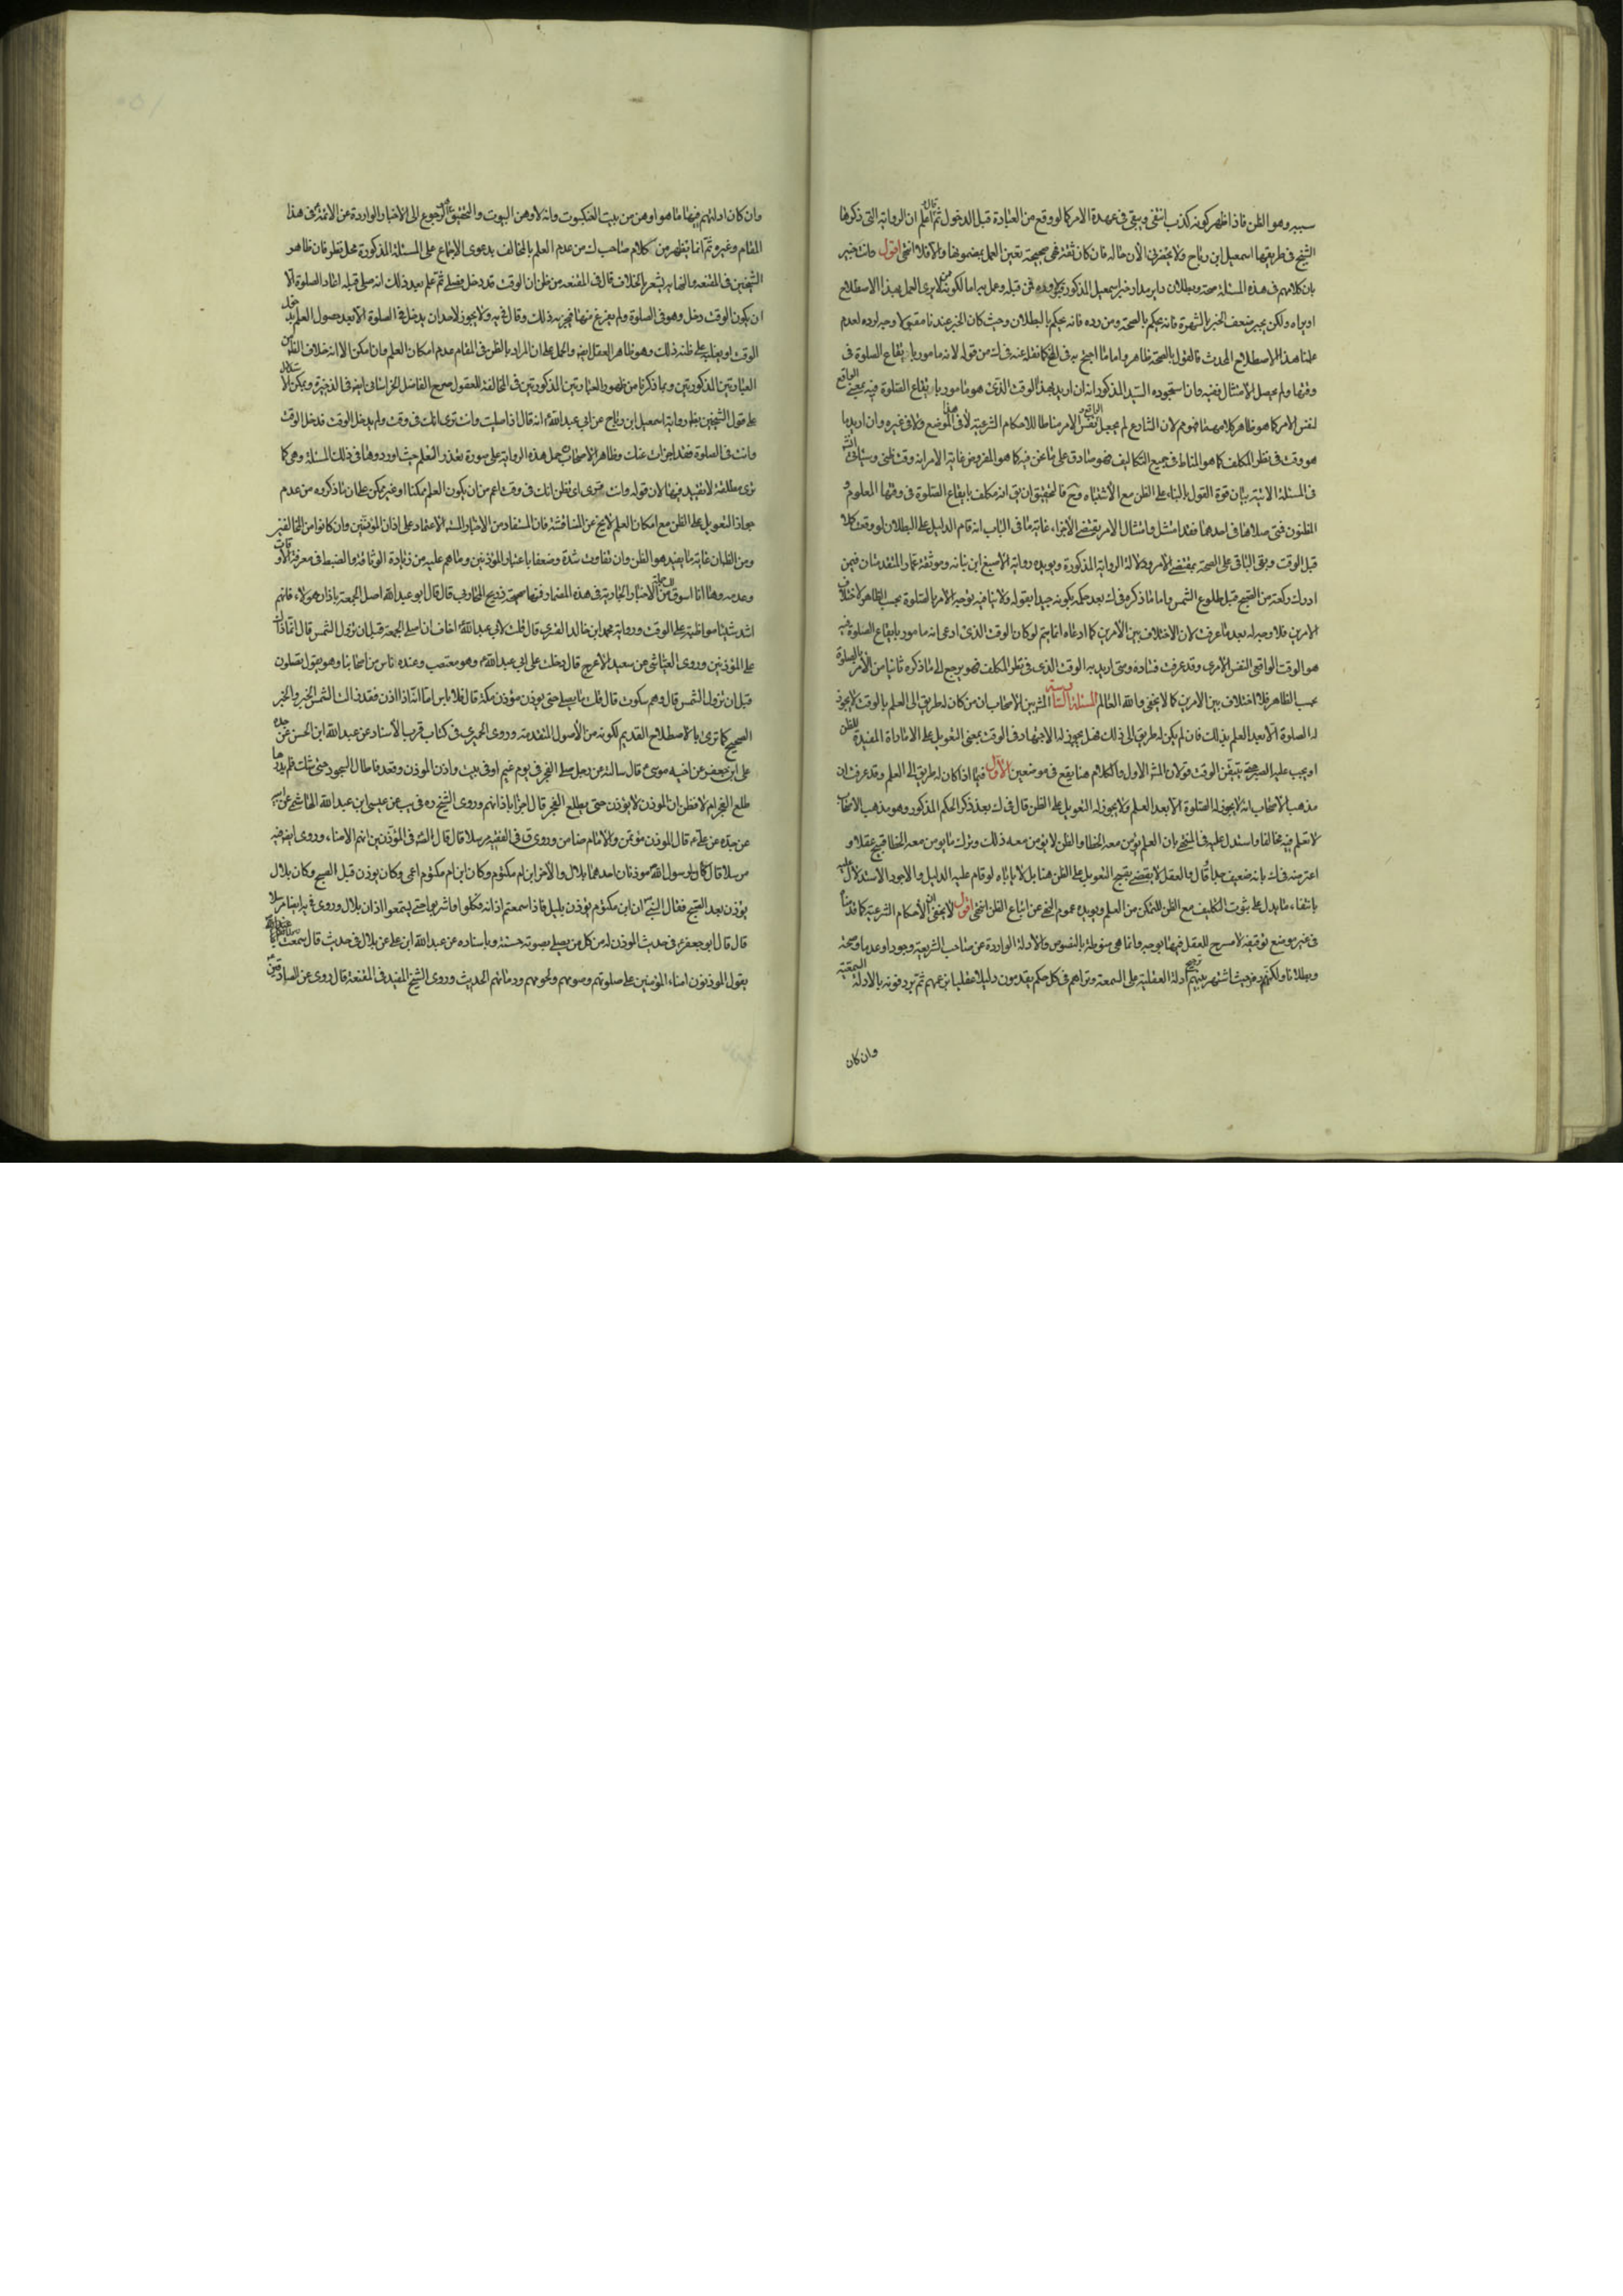 سببه وهو الظن فاذا ظهر كونه كذب انتفى وبقى فى عهدة الامر كما لو وقع من العبادة قبل الدخول ثم قال اعلم ان الرواية التى ذكرها
الشيخ فى طريقها اسمعيل ابن رباح ولا يحضرنى الان حاله فان كان ثقة فهى صحيحة تعين العمل بمضمونها والا فلا انتهى اقول وانت خبير
بان كلامهم فى هذه المسئلة صحة وبطلان داير مدار خبر اسمعيل المذكور فمن قبله وعمل به اما لكونه ممن لا يرى العمل بهذا الاصطلاح
او يراه ولكن يجبر ضعف الخبر بالشهرة فانه يحكم بالصحة ومن رده فانه يحكم بالبطلان وحيث كان الخبر عندنا مقبولا وجه لرده لعدم
عملنا بهذا الاصطلاح المحدث فالقول بالصحة ظاهر واما ما احتج به فى كما نقله عنه فى ك من قوله لانه مامور بايقاع الصلوة فى
وقتها ولم يحصل الامتثال ففيه وان استجوده السيد المذكور انه ان اريد بهذا الوقت الذى هو مامور بايقاع الصلوة فيه يعنى الواقع
لنفس الامر كما هو ظاهر كلامهما فهو لان الشارع لم يجعل الواقع ونفس الامر مناطا للاحكام الشرعية لا فى هذا الموضع ولا فى غيره وان اريد ما
هو وقت فى نظر المكلف كما هو المناط فى جميع التكاليف فهو صادق على ما نحن فيه كما هو المفروض غاية الامر انه وقت ظنى وسياتى انش
فى المسئلة الاتية بيان قوة القول بالبناء على الظن مع الاشتباه وح فالتحقيق ان يق انه مكلف بايقاع الصلوة فى وقتها المعلوم او
المظنون فمتى صلاها فى احدهما فقد امتثل وامتثال الامر يقتضى الاجزاء غاية ما فى الباب انه قام الدليل على البطلان لو وقعت كلا
قبل الوقت وبقى الباقى على الصحة بمقتضى الامر ودلالة الرواية المذكورة ويويده رواية الاصبغ ابن نباته وموثقة عمار المتقدمتان فيمن
ادرك ركعة من الصبح قبل طلوع الشمس واما ما ذكره فى ك بعد حكمه بكونه جيدا بقوله ولا ينافيه توجه الامر بالصلوة بحسب الظاهر لاختلاف
الامرين فلا وجه له بعد ما عرفت لان الاختلاف بين الامرين كما ادعاه انما يتم لو كان الوقت الذى ادعى انه مامور بايقاع الصلوة فيه
هو الوقت الواقعى النفس الامرى وقد عرفت فساده ومتى اريد به الوقت الذى فى نظر المكلف فهو يرجع الى ما ذكره ثانيا من الامر بالصلوة
بحسب الظاهر فلا اختلاف بين الامرين كما لا يخفى والله العالم المسئلة السادسة المش بين الاصحاب ان من كان له طريق الى العلم بالوقت لا يجوز
له الصلوة الا بعد العلم بذلك فان لم يكن له طريق الى ذلك فهل يجوز له الاجتهاد فى الوقت بمعنى التعويل على الامارة المفيدة للظن
او يجب عليه الصبر حتى يتيقن الوقت قولان المش الاول فالكلام هنا يقع فى موضعين الاول فيما اذا كان له طريق الى العلم وقد عرفت ان
مذهب الاصحاب انه لا يجوز له الصلوة الا بعد العلم ولا يجوز له التعويل على الظن قال فى ك بعد ذكر الحكم المذكور وهو مذهب الاصحاب
لا نعلم فيه مخالفا واستدل عليه فى المنتهى بان العلم يؤمن معه الخطا والظن لا يؤمن معه ذلك وترك ما يؤمن معه الخطا قبيح عقلا و
اعترضه فى ك بانه ضعيف جدا قال والعقل لا يقضى بقبح التعويل على الظن هنا بل لا ياباه لو قام عليه الدليل والاجود الاستدلال عليه
بانتفاء ما يدل على ثبوت التكليف مع الظن للتمكن من العلم ويويده عموم النهى عن اتباع الظن انتهى اقول لا يخفى ان الاحكام الشرعية كما قدمنا
فى غير موضع توقيفية لا مسرح للعقل فيها بوجه وانما هى منوطة بالنصوص والادلة الواردة عن صاحب الشريعة وجودا وعدما وصحة
وبطلانا ولكنهم حيث اشتهر بينهم ترجيح ادلة العقلية على السمعية وتراهم فى كل حكم يقدمون دليلا عقليا بزعمهم ثم يردفونه بالادلة السمعية
وان كان
وان كان ادلتهم فيها ما هو اوهن من بيت العنكبوت وانه لاوهن البيوت والتحقيق هو الرجوع الى الاخبار الواردة عن الائمة ع فى هذا
المقام وغيره ثم انما يظهر من كلام صاحب ك من عدم العلم بالمخالف بدعوى الاجماع على المسئلة المذكورة محل نظر فان ظاهر
الشيخين فى المقنعة والنهاية يشعر بالخلاف قال فى المقنعة من ظن ان الوقت قد دخل فصلى ثم علم بعد ذلك انه صلى قبله اعاد الصلوة الا
ان يكون الوقت دخل وهو فى الصلوة ولم يفرغ منها فيجزيه ذلك وقال فى يه ولا يجوز لاحد ان يدخل فى الصلوة الا بعد حصول العلم بدخول
الوقت او يغلب على ظنه ذلك وهو ظاهر العقل ايض والحمل على ان المراد بالظن فى المقام عدم امكان العلم وان امكن الا انه خلاف الظ من
العبارتين المذكورتين وبما ذكرنا من ظهور العبارتين المذكورتين فى المخالفة للعقول صرح الفاضل الخراسانى ايض فى الذخيرة ويمكن الاستدلال
على قول الشيخين بظ رواية اسمعيل ابن رباح عن ابى عبدالله ع انه قال اذا صليت وانت ترى انك فى وقت ولم يدخل الوقت فدخل الوقت
وانت فى الصلوة فقد اجزات عنك وظاهر الاصحاب حمل هذه الرواية على سورة تعذر العلم حيث اوردوها فى ذلك المسئلة وهى كما
ترى مطلقة لا تقييد فيها لان قوله وانت ترى اى تظن انك فى وقت اعم من ان يكون العلم ممكنا او غير ممكن على ان ما ذكروه من عدم
جواز التعويل على الظن مع امكان العلم لا يخ عن المناقشة فان المستفاد من الاخبار الاعتماد على اذان المؤذنين وان كانوا من المخالفين
ومن الظ ان غاية ما يفيد هو الظن وان تفاوت شدة وضعفا باعتبار المؤذنين وما هم عليه من زيادة الوثاقة والضبط فى معرفة الاوقات
وعدمه وها انا اسوق من الاخبار الجارية فى هذه المضمار فمنها صحيحة ذريح المحاربى قال قال ابو عبدالله اصل الجمعة باذان هولاء فانهم
اشد شيئا مواظبة على الوقت ورواية محمد ابن خالد القسرى قال قلت لابى عبدالله اخاف ان اصلى الجمعة قبل ان تزول الشمس قال انما ذلك
على المؤذنين وروى العياشى عن سعيد الاعرج قال دخلت على ابى عبدالله ع وهو مغضب وعنده اناس من اصحابنا وهو يقول تصلون
قبل ان تزول الشمس قال وهم سكوت قال قلت ما نصلى حتى يوذن موذن مكة قال فلا باس اما انه اذا اذن فقد زالت الشمس الخبر والخبر
الصحيح كما ترى بالاصطلاح القديم لكونه من الاصول المتقدمة وروى الحميرى فى كتاب قرب الاسناد عن عبدالله ابن الحسن عن جده
على ابن جعفر عن اخيه موسى ع قال سالته عن رجل صلى الفجر فى يوم غيم او فى بيت واذن الموذن وقعد فاطال السجود حتى شك فلم يدر هل
طلع الفجر ام لا فظن ان الموذن لا يوذن حتى يطلع الفجر قال اجزاه اذانهم وروى الشيخ ره فى يب عن عيسى ابن عبدالله الهاشمى عن ابيه
عن جده عن على ع قال الموذن موتمن والامام ضامن وروى ق فى الفقيه مرسلا قال قال ع فى المؤذنين انهم الامناء وروى ايض فيه
مرسلا قال كان لرسول الله موذنان احدهما بلال والاخر ابن ام مكتوم وكان ابن ام مكتوم اعمى وكان يوذن قبل الصبح وكان بلال
يوذن بعد الصبح فقال النبى ان ابن مكتوم يوذن بليل فاذا سمعتم اذانه فكلوا واشربوا حتى تسمعوا اذان بلال وروى فيه ايضا مرسلا
قال قال ابو جعفر ع فى حديث الموذن له من كل من يصلى بصوته حسنة وباسناده عن عبدالله ابن على عن بلال فى حديث قال سمعت رسول الله
يقول الموذنون امناء المؤمنين على صلوتهم وصومهم ولحومهم ودمائهم الحديث وروى الشيخ المفيد فى المقنعة قال روى عن الصادقين